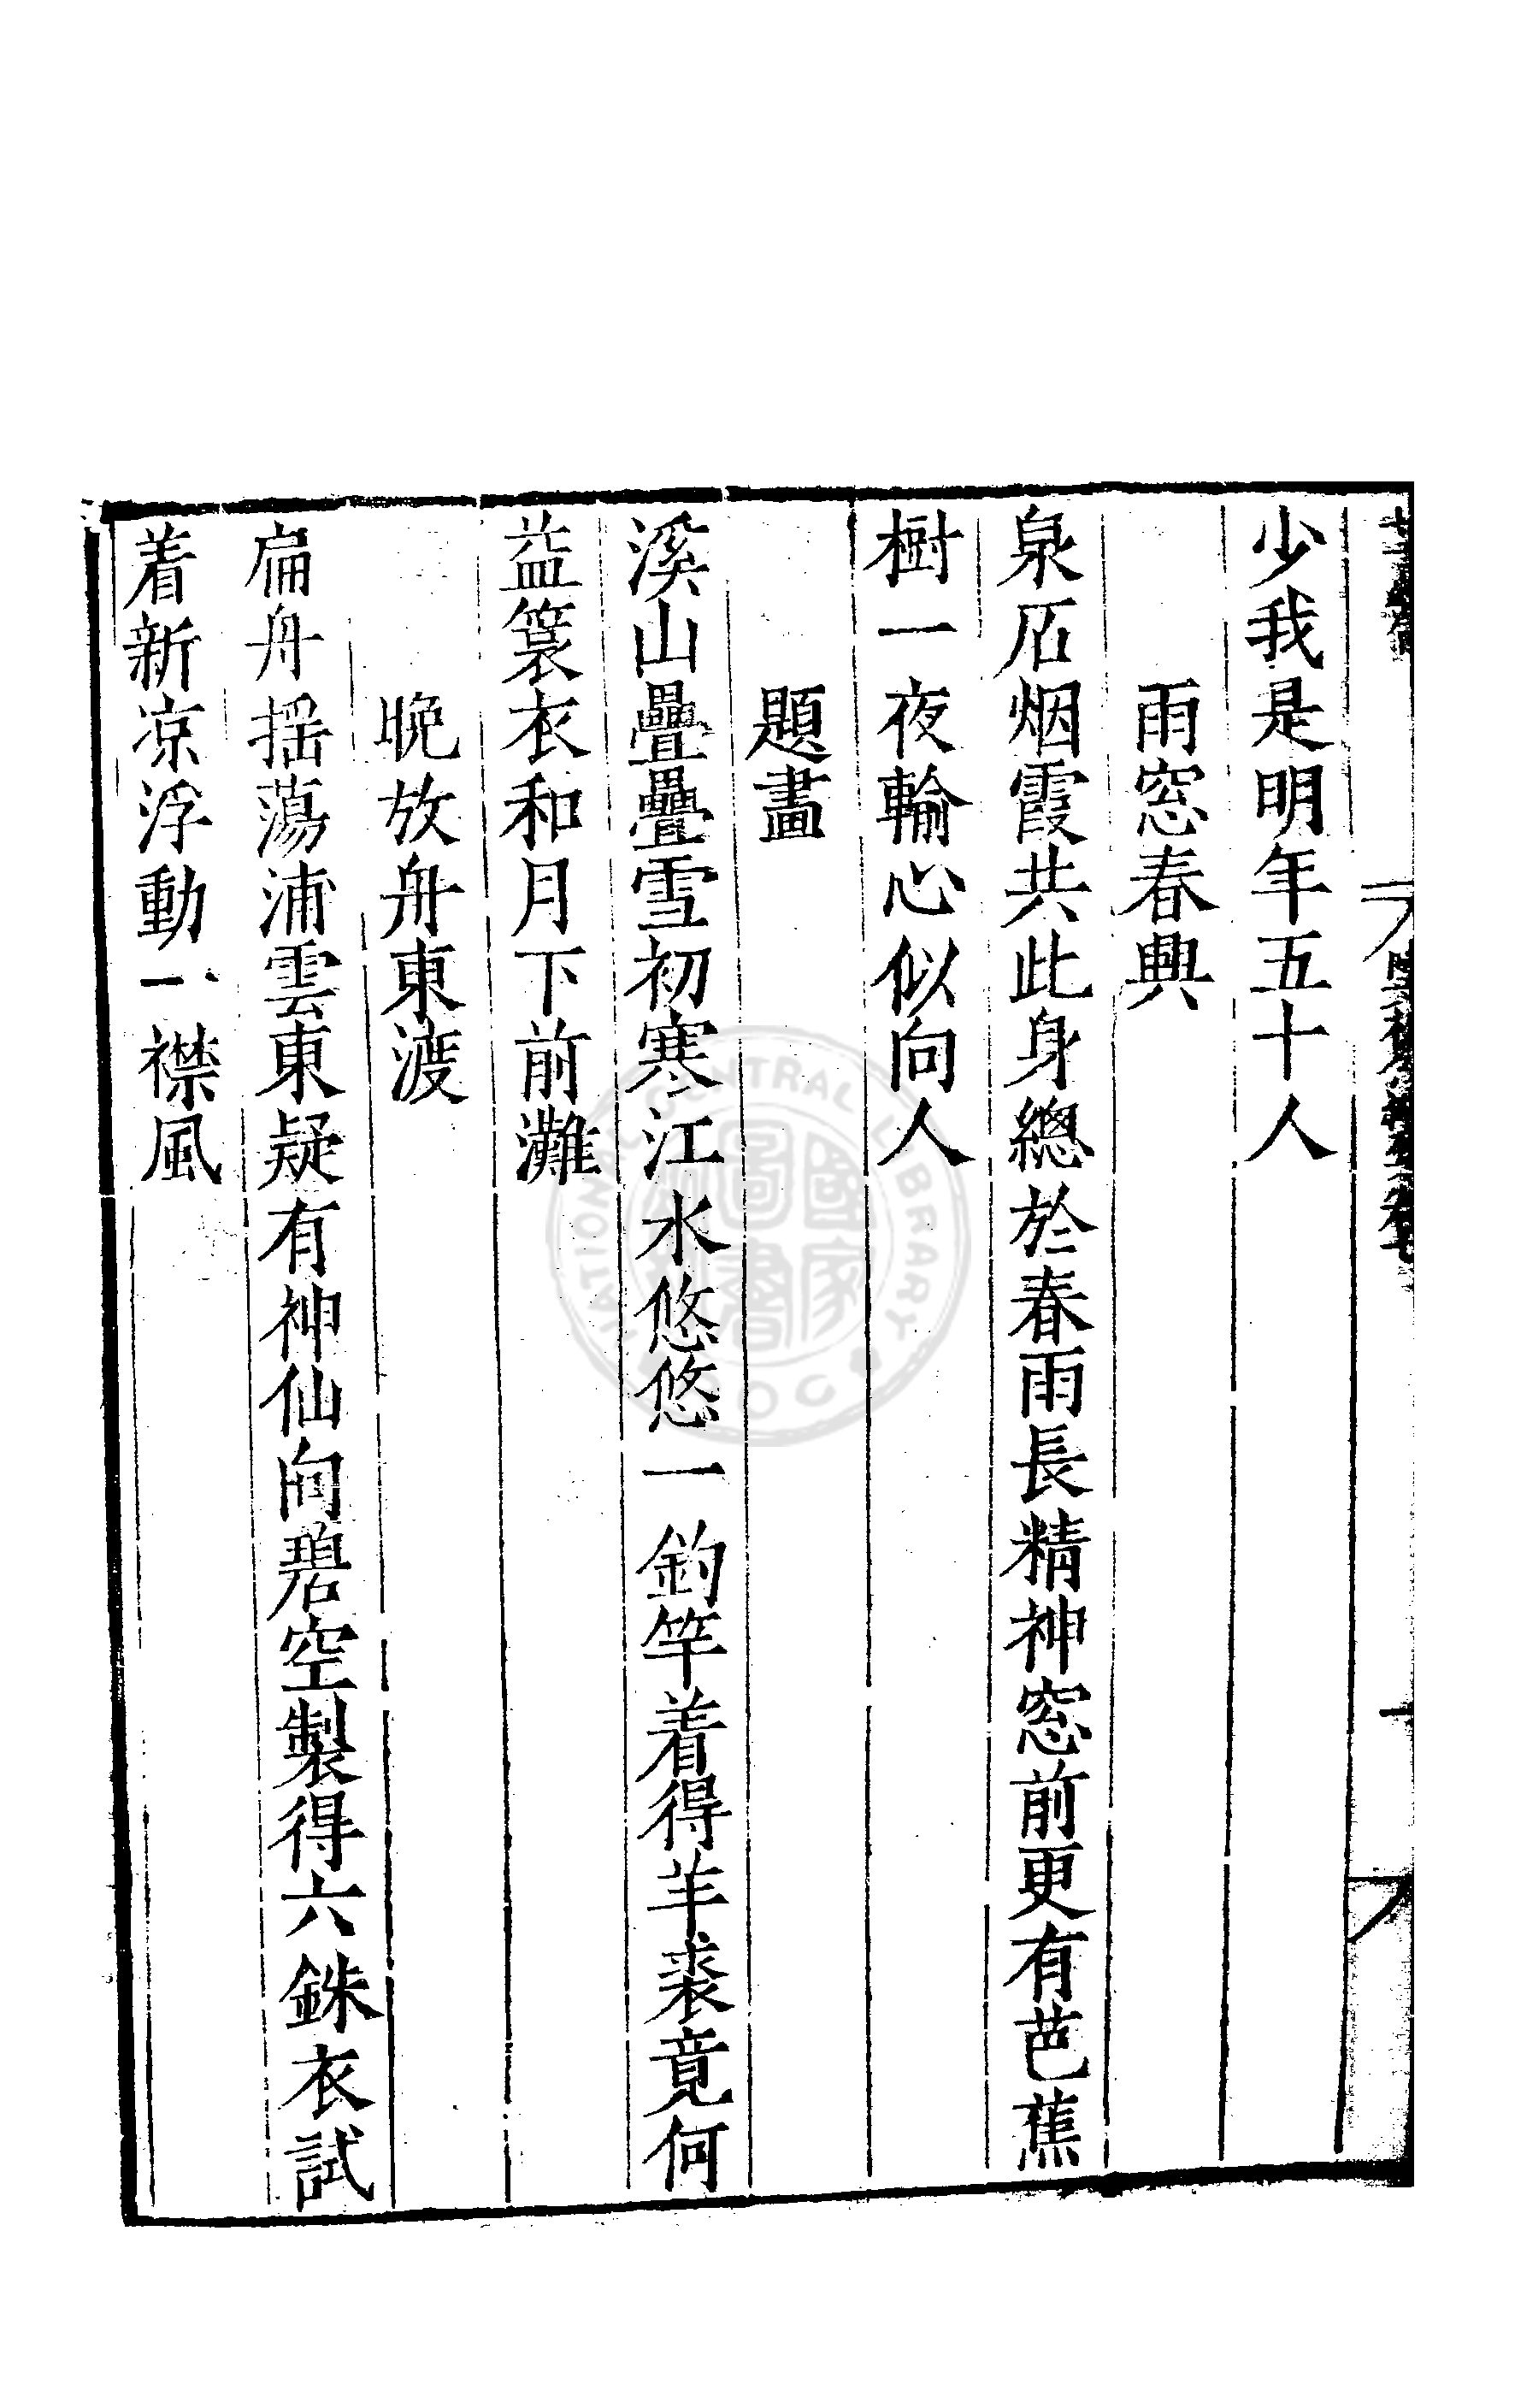 少我是明年五十人
雨窓春興
泉石烟霞共此身總於春雨長精神窓前更有芭蕉
樹一夜輸心似向人
題畫
溪山疊疊雪初寒江水悠悠一釣竿着得羊裘竟何
益簑衣和月下前灘
晩放舟東渡
扁舟揺蕩浦雲東疑有神仙向碧空製得六銖衣試
着新凉浮動一襟風
NATIONAL CENTRAL LIBRARY
國家圖書